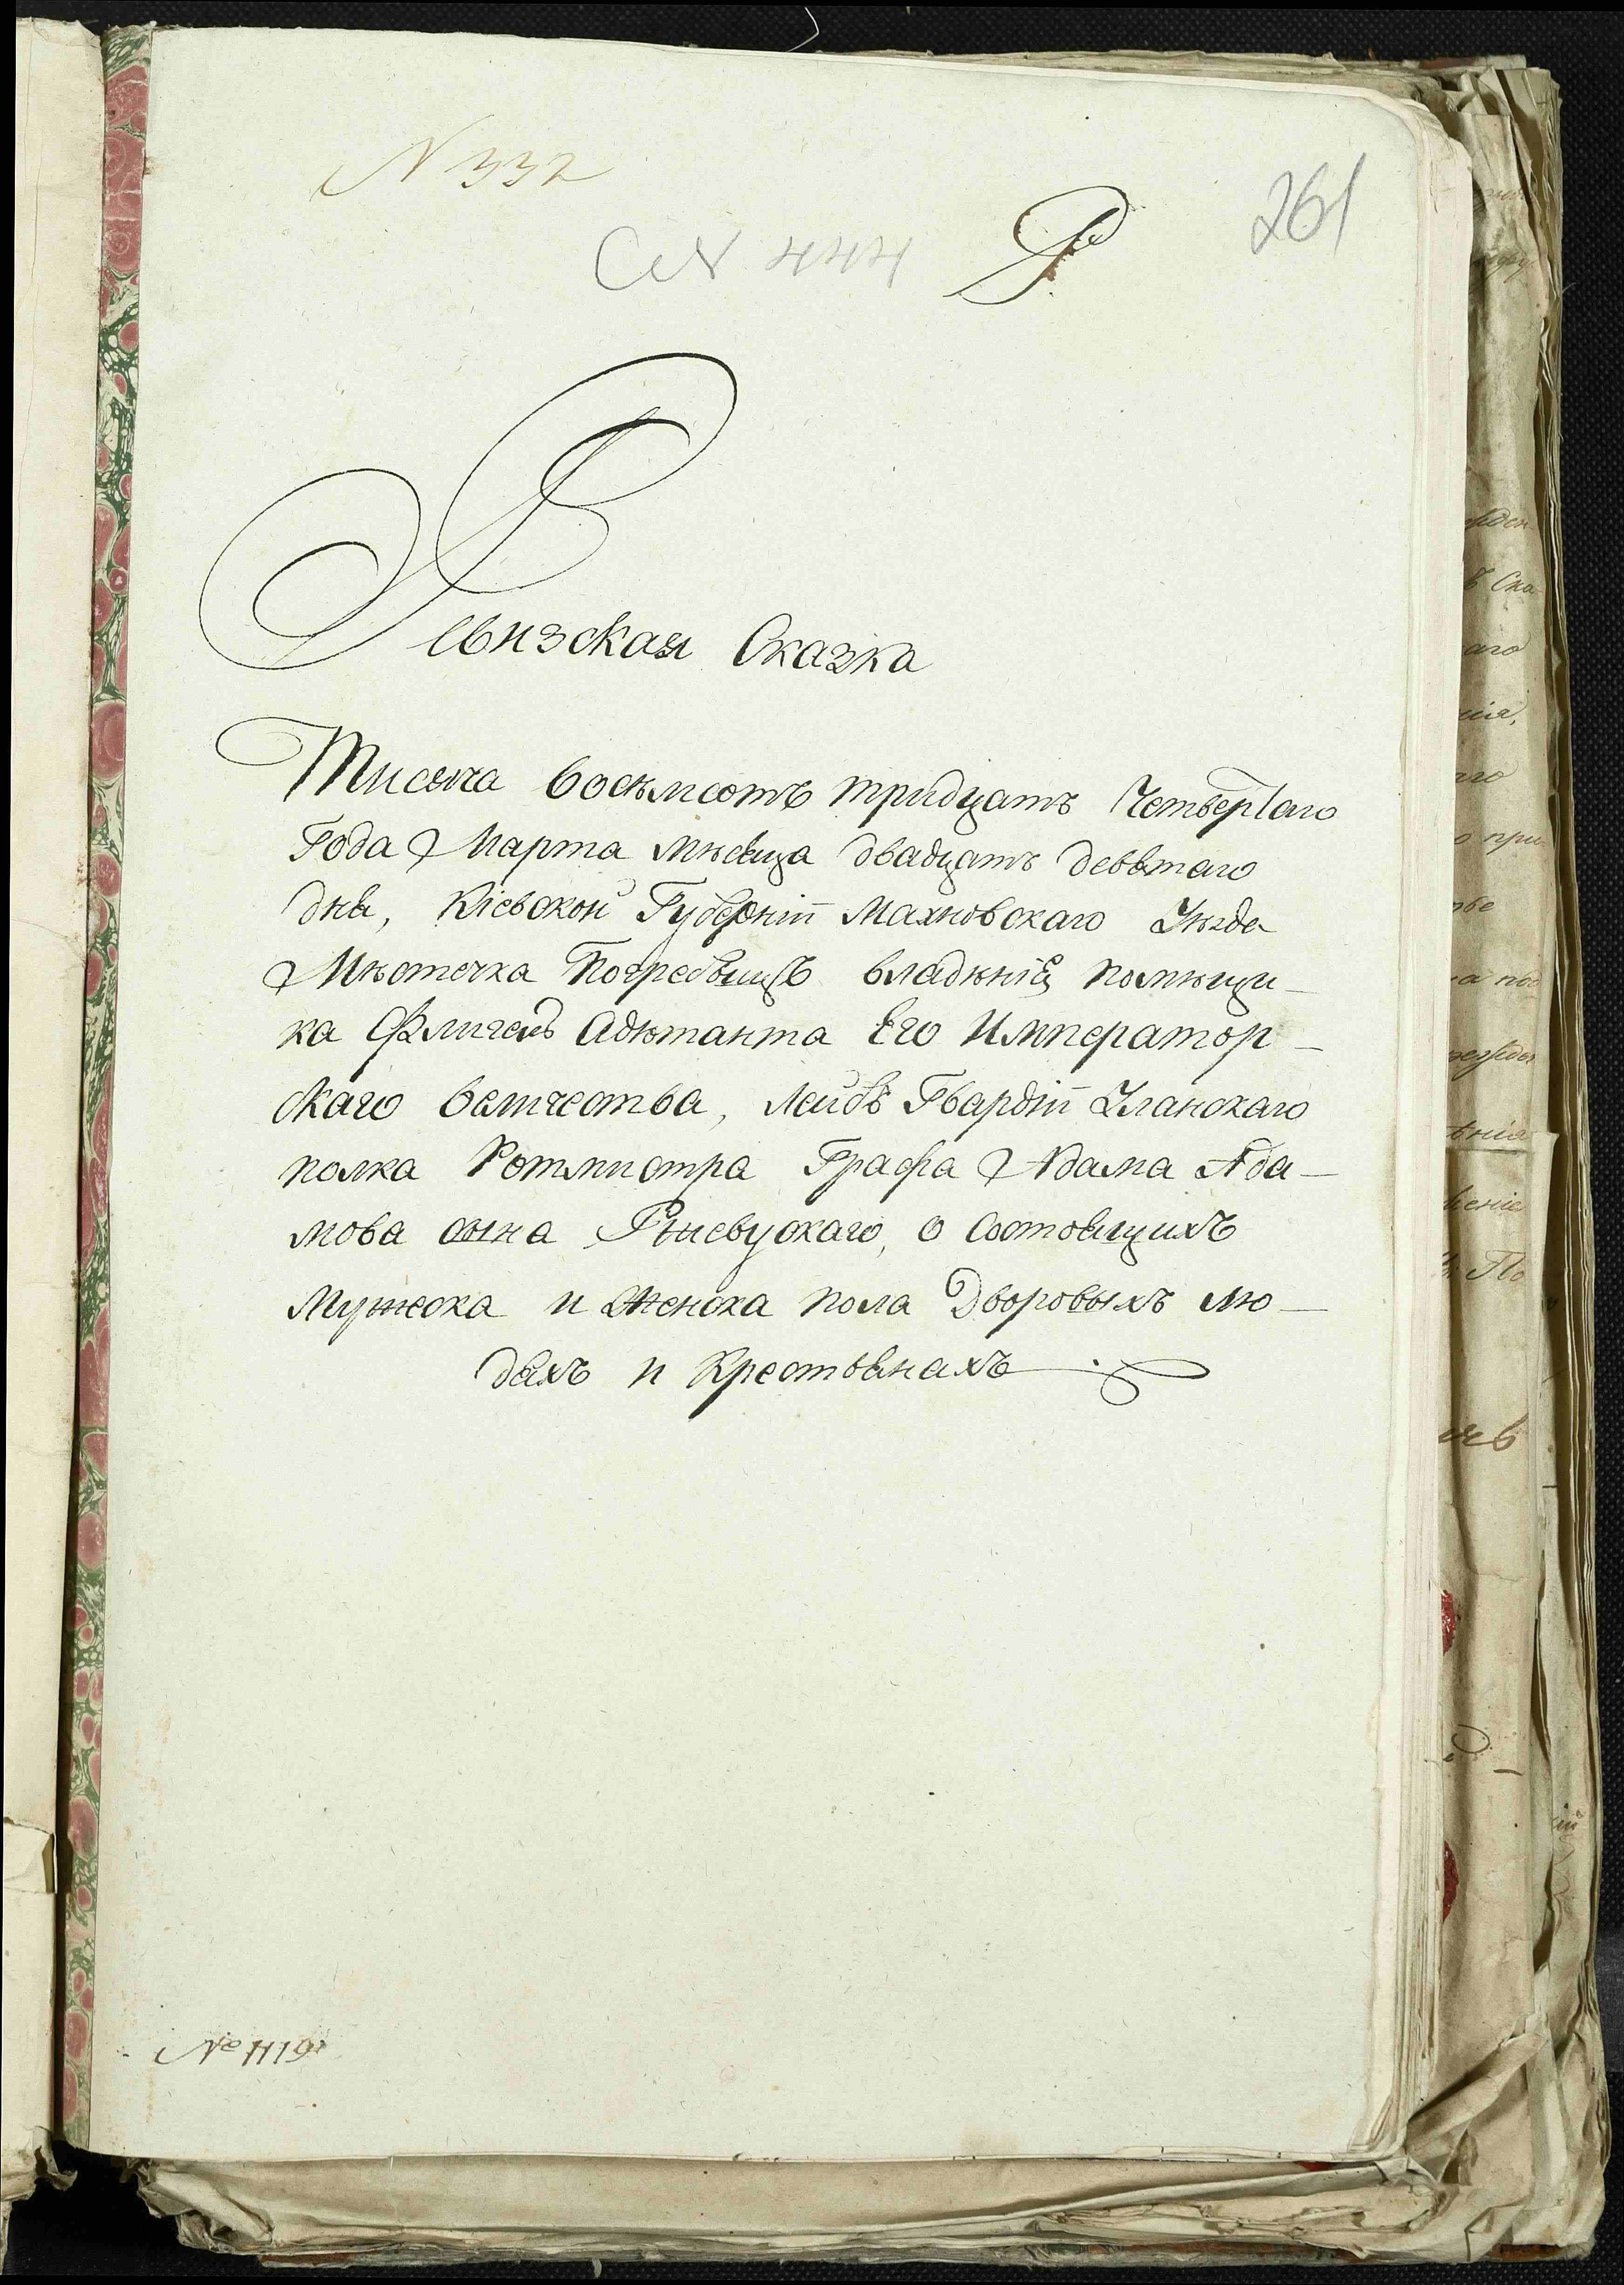 N 332
СN 444
261
Ревизская Сказка
Тисяча восѣмсотъ тридцать Четвертаго
Года Марта мѣсяца двадцать девятаго
дня, Кіевской Губерніи Махновскаго Уѣзда
Мѣстечка Погребищъ владѣнія помѣщи-
ка Флигель Адютанта Его Император-
скаго величества, Лейбъ Гвардіи Уланскаго
полка Ротмистра Графа Адама Ада-
мова сына Ржевускаго, о состоящихъ
Мужеска и Женска пола Дворовыхъ лю-
дяхъ и Крестьянахъ
№ 1119